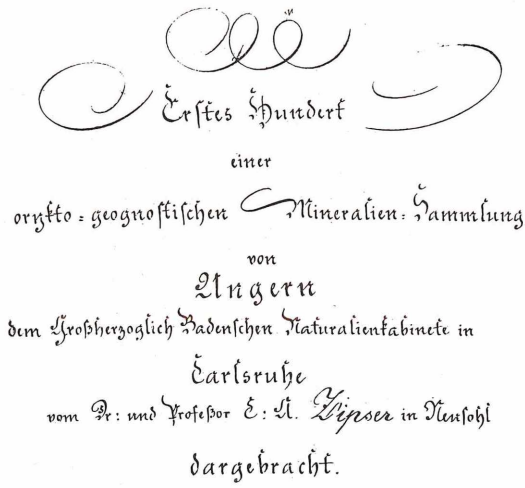 Erstes Hundert
einer
orykto = geognostischen Mineralien = Sammlung
von
Ungern
dem Großherzoglich Badenschen Naturalienkabinete in
Carlsruhe
vom Dr: und Profeßor C: A. Zipser in Neusohl
dargebracht.